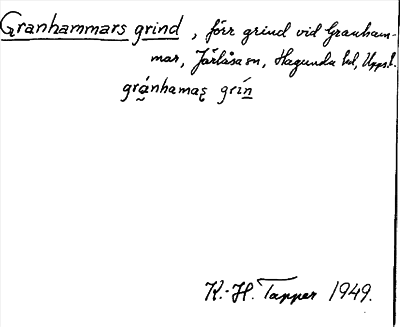 Granhammars grind, förr grind vid Granham-
mar, Järlåsa sn, Hagunda hd, Uppsl.
gránhamaʂ grín
K.-H. Tapper 1949.